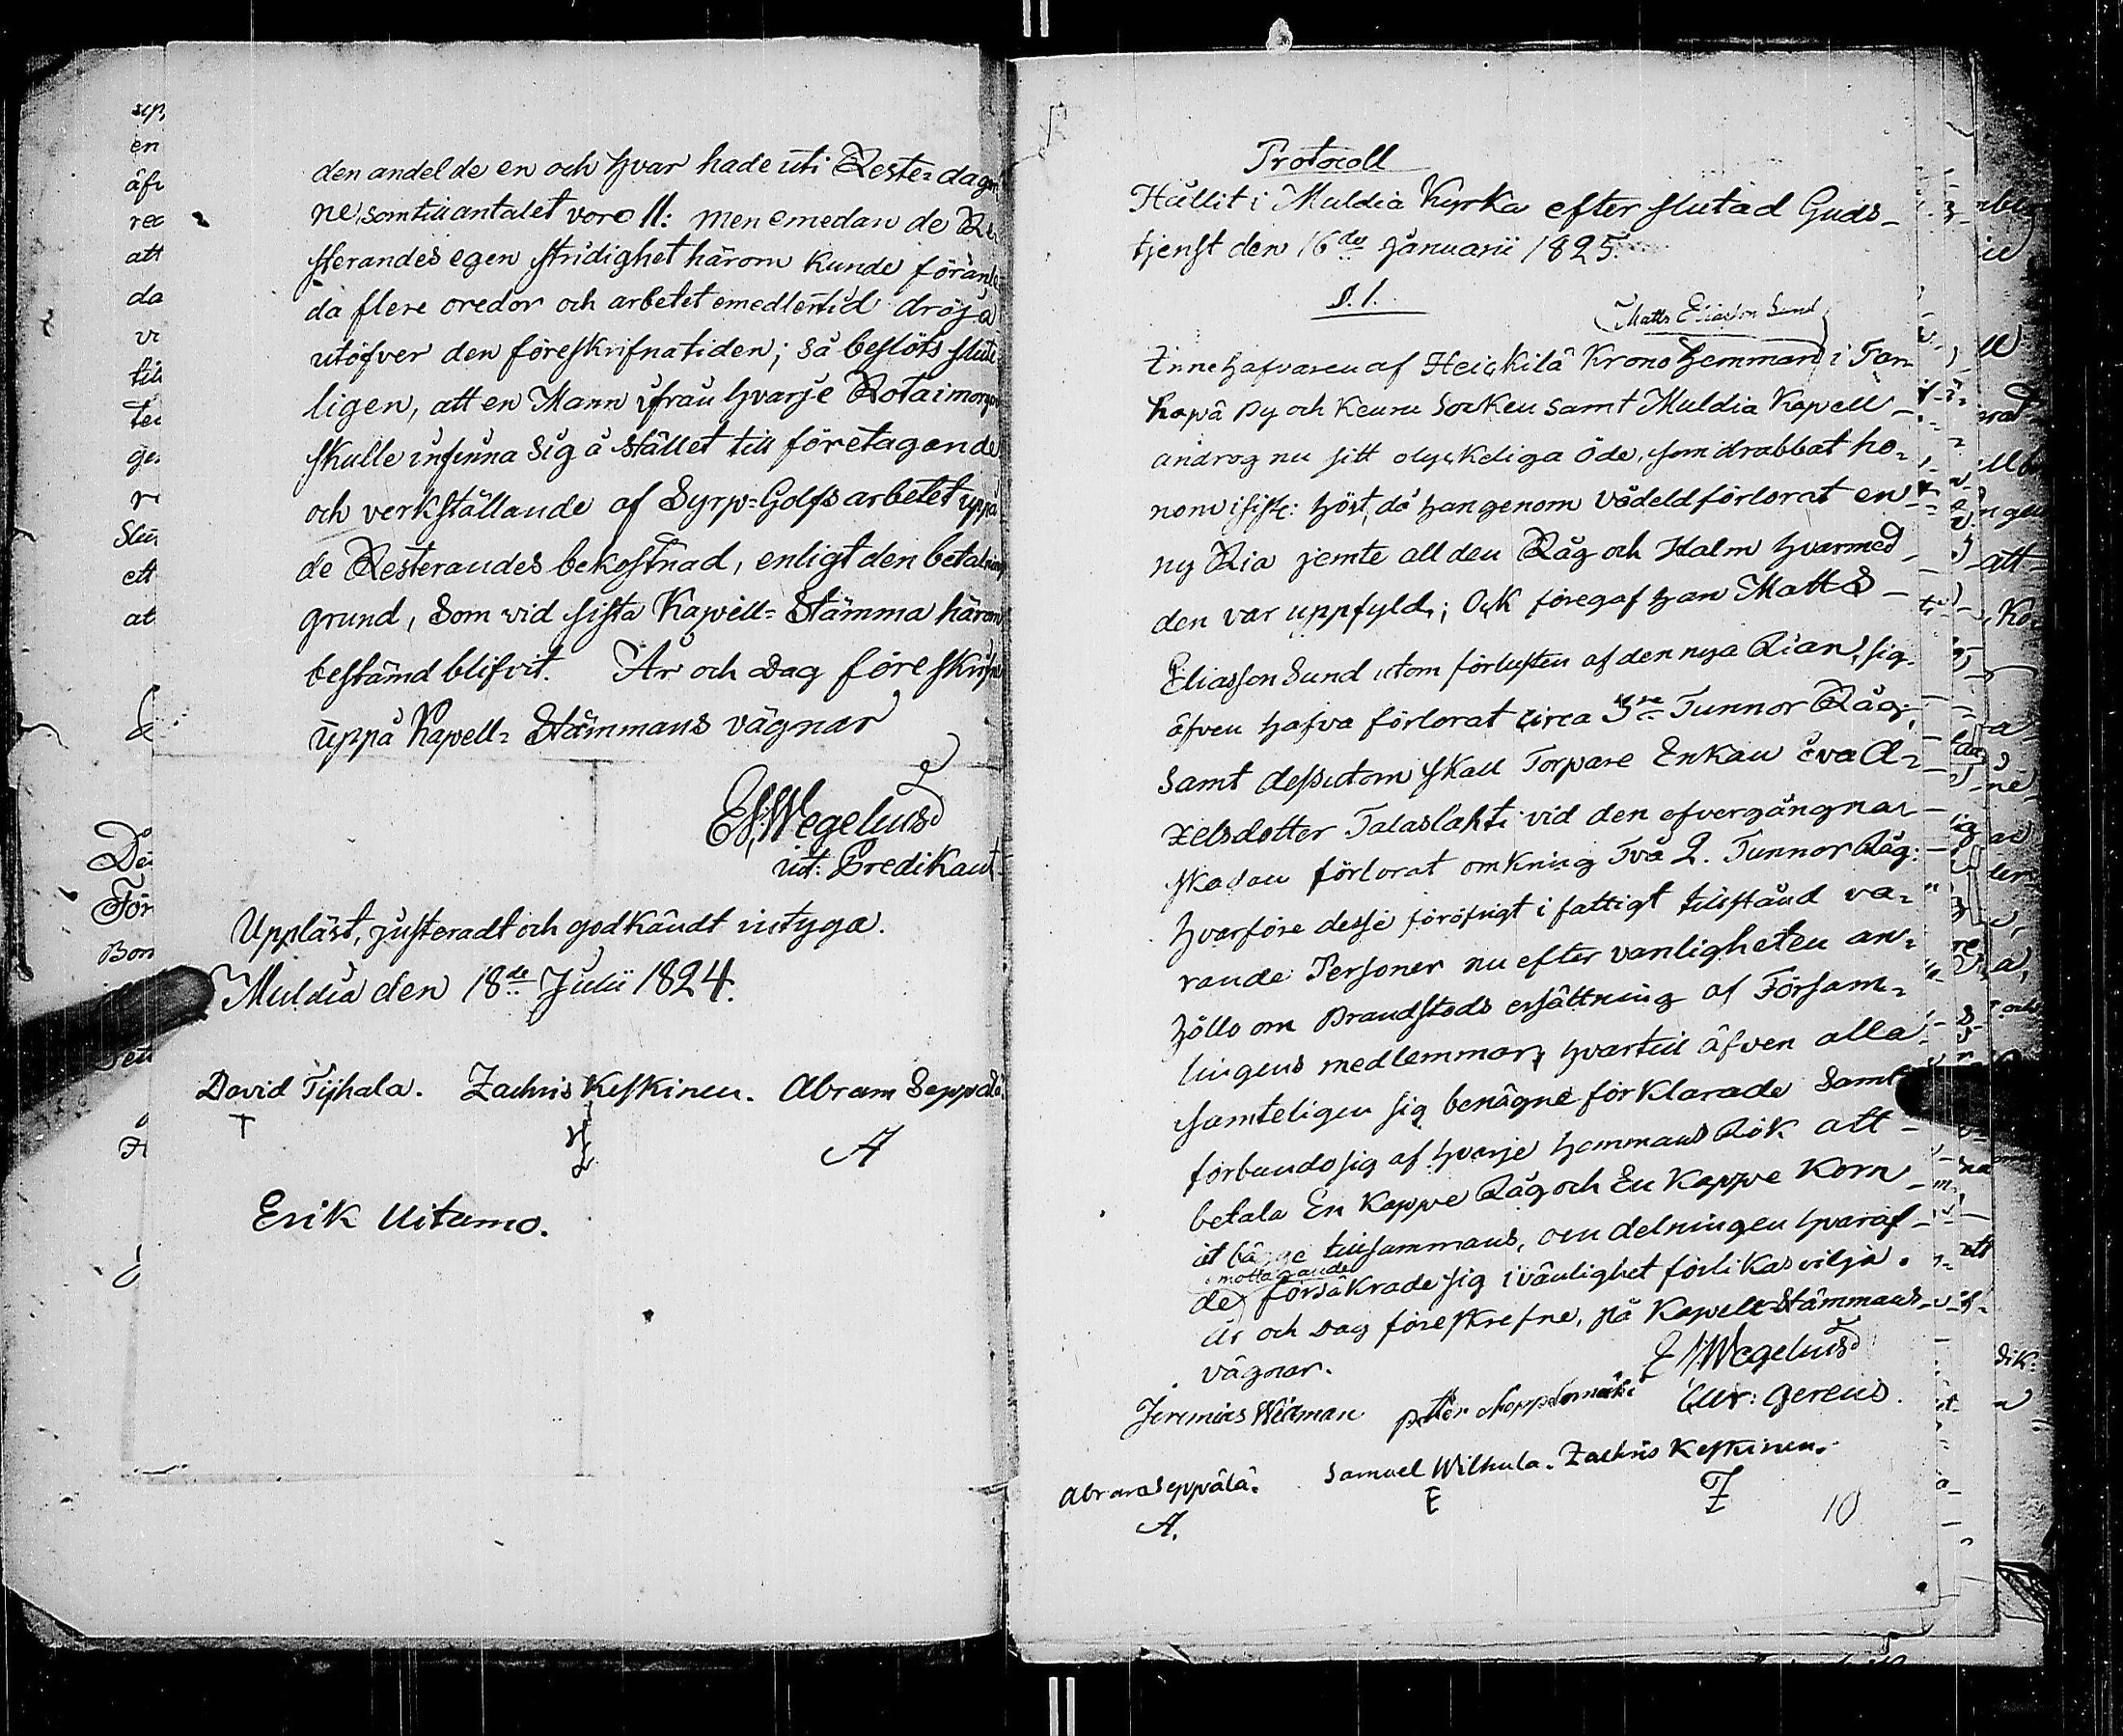 den andel de en och hvar hade uti Reste=dagar
ne, som till antalet voro 11: men emedan de Re
sterandes egen stridighet härom kunde föranle
da flere oredor och arbetet emedlertid dröja
utöfver den föreskrifna tiden; så beslöts slute
ligen, att en Mann ifrån hvarje Rota i morgon
skulle infinna sig å stället till företagande
och verkställande af Syrp=Golfs arbetet uppå
de Resterandes bekostnad, enligt den betalnings
grund, som vid sista Kapell=Stämma härom
bestämd blifvit. År och Dag föreskrifne
uppå Kapell=Stämmans vägnar
Wegelius
Predikant
Uppläst, justeradt och godkändt intyga.
Muldia den 18de Julii 1824.
David Tijhala. Zachris Keskinen. Abram Seppälä
T Z A
Erik Uitamo.
Protocoll
Hållit i Muldia Kyrka efter slutad Guds-
tjenst den 16de Januarii 1825.
§. 1.
Matts Eliasson Sund
Innehafvaren af Heickilä Krono Hemman i Tar
hapä By och Keuru Socken samt Muldia Kapell
androg nu sitt olyckeliga öde, som drabbat ho=
nom i sistl: höst, då han genom vådeld förlorat en
ny Ria jemte all den Råg och Halm hvarmed
den var uppfyld; Ock föregaf han Matts
Eliasson Sund utom förlusten af den nya Rian, sig
äfven hafva förlorat circa Tunnor Råg;
samt dessutom skall Torpare Enkan Eva A=
xelsdotter Talaslahti vid den öfvergångna
skadan förlorat omkring Två 2. Tunnor Råg:
hvarföre desse föröfrigt i fattigt tillstånd va=
rande Personer nu efter vanligheten an=
höllo om Brandstods ersättning af Församl=
lingens medlemmar, hvartill äfven alla
samteligen sig benägne förklarade samt
förbundo sig af hvarje hemmans Rök att
betala En Kappe Råg och En Kappe Korn
åt bägge tillsammans, om delningen hvaraf
mottagande
de försäkrade sig i vänlighet förlikas vilja.
År och Dag föreskrefne, på Kapell-Stämmans
vägnar. Wegelius
Jeremias Widman petter Cur: gerens.
Abram Seppälä. Samuel Wilhula. Zachris Keskinen.
A. E Z
10